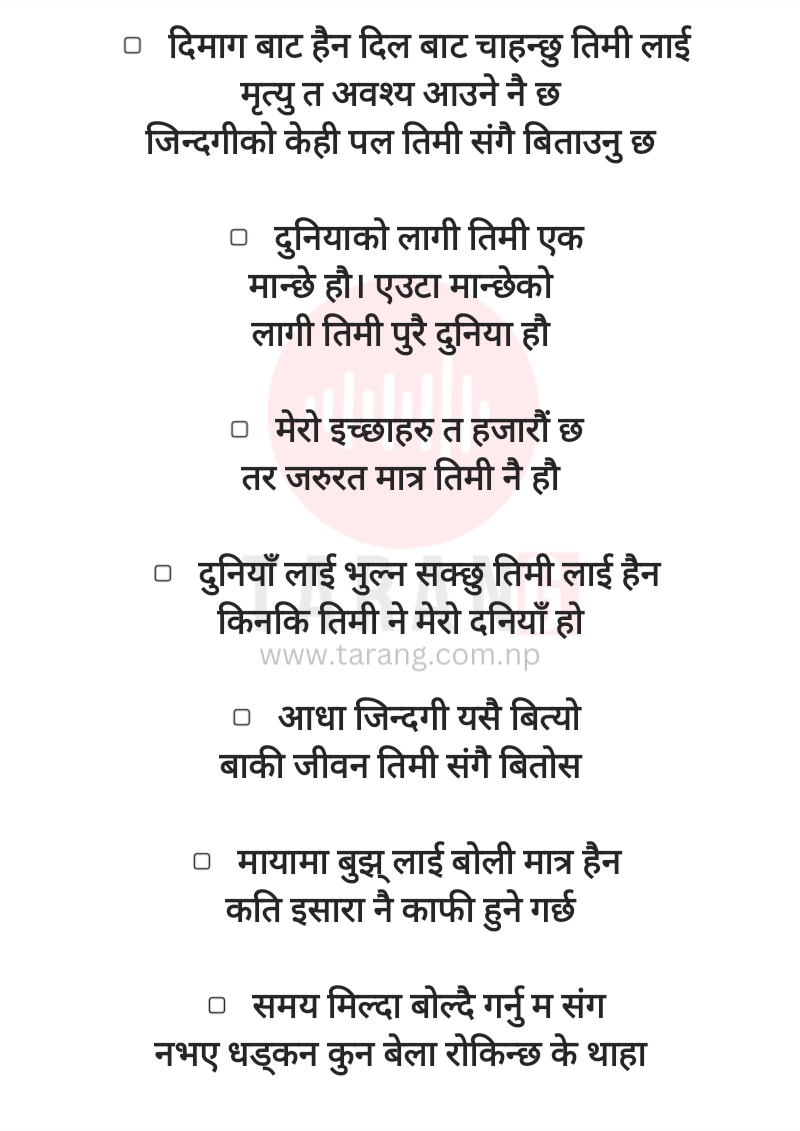 ▢ दिमाग बाट हैन दिल बाट चाहन्छु तिमी लाई
मृत्यु त अवश्य आउने नै छ
जिन्दगीको केही पल तिमी संगै बिताउनु छ
▢ दुनियाको लागी तिमी एक
मान्छे हौ। एउटा मान्छेको
लागी तिमी पुरै दुनिया हौ
▢ मेरो इच्छाहरु त हजारौं छ
तर जरुरत मात्र तिमी नै हौ
▢ दुनियाँ लाई भुल्न सक्छु तिमी लाई हैन
किनकि तिमी ने मेरो दनियाँ हो
TARANG
www.tarang.com.np
▢ आधा जिन्दगी यसै बित्यो
बाकी जीवन तिमी संगै बितोस
▢ मायामा बुझ् लाई बोली मात्र हैन
कति इसारा नै काफी हुने गर्छ
▢ समय मिल्दा बोल्दै गर्नु म संग
नभए धड्कन कुन बेला रोकिन्छ के थाहा